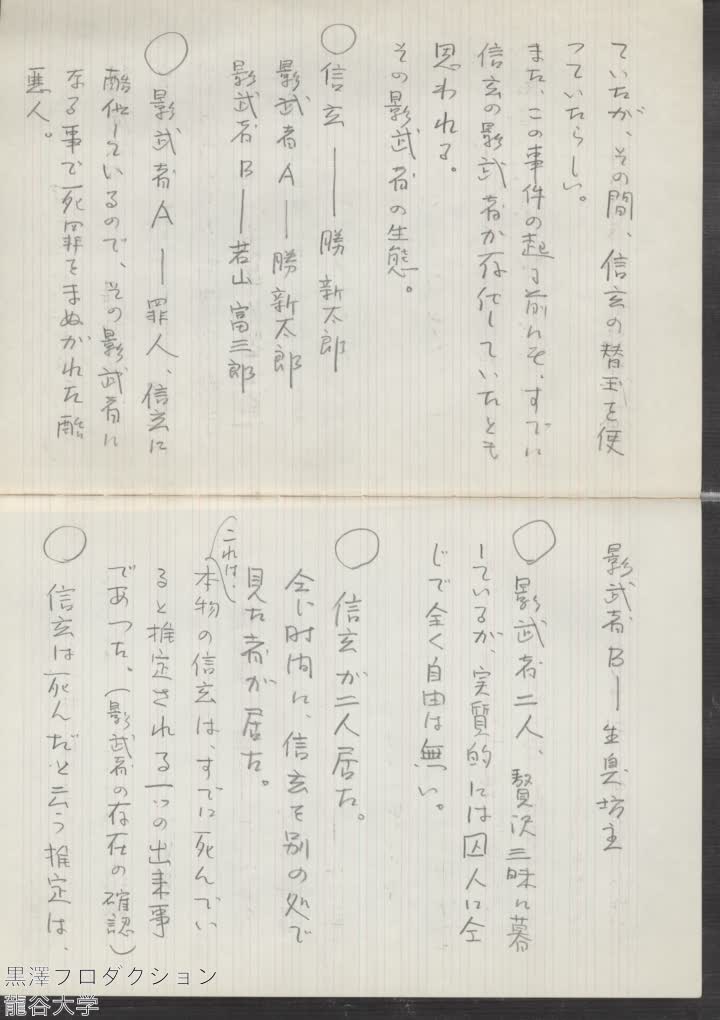 ていたが、その間、信玄の替玉を使
つていたらしい。
また、この事件の起る前にも、すでに
信玄の影武者が存在していたとも
思われる。
その影武者の生態。
○信玄――勝新太郎
影武者A――勝新太郎
影武者B――若山富三郎
○影武者A――罪人、信玄に
酷似しているので、その影武者に
なる事で死罪をまぬかれた酷
悪人。
影武者B――生臭坊主
○影武者二人、贅沢三昧に暮
しているが、実質的には囚人に仝
じで全く自由は無い。
○信玄が二人居た。
仝じ時間に、信玄を別の処で
見た者が居た。
これは、
本物の信玄は、すでに死んでい
ると推定される一つの出来事
であつた。(影武者の存在の確認)
○信玄は死んだと云う推定は、
黒澤プロダクション
龍谷大学